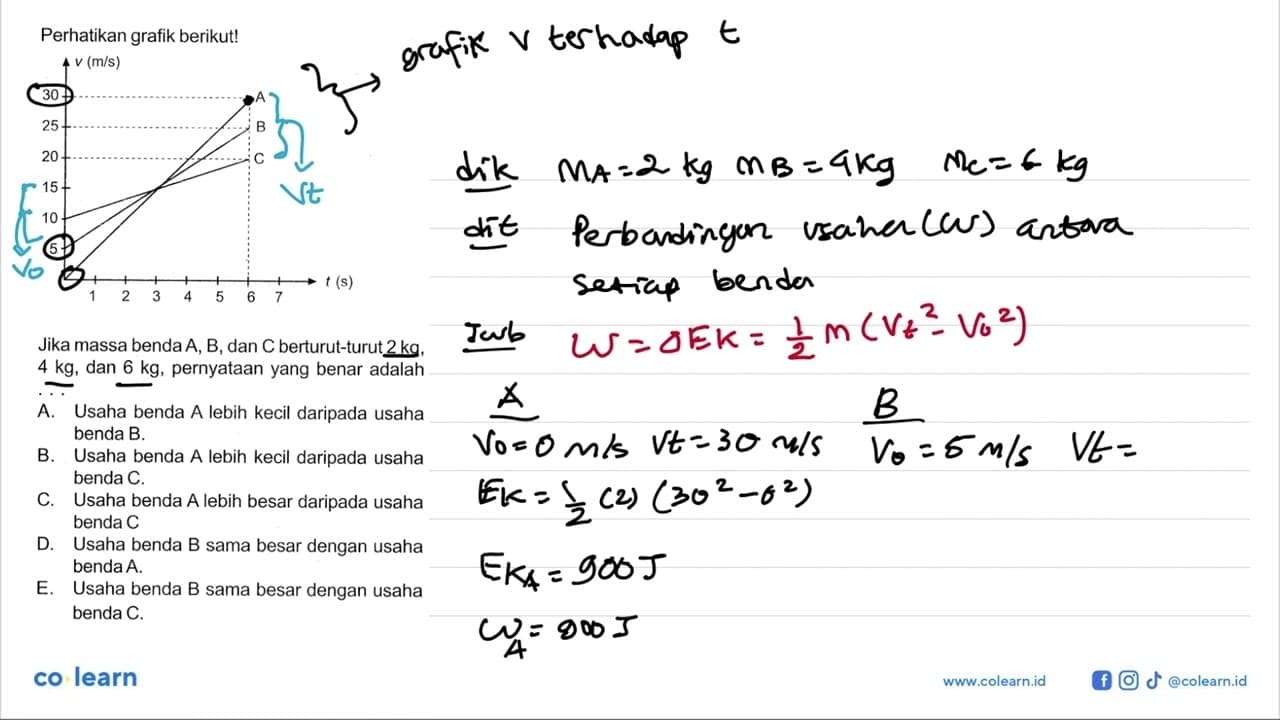 Perhatikan grafik berikut!
v (m/s)
30
25
20
15
10
5
A
B
C
1 2 3 4 5 6 7
t (s)
Vt
Vo
Jika massa benda A, B, dan C berturut-turut 2 kg,
4 kg, dan 6 kg, pernyataan yang benar adalah
. . .
A. Usaha benda A lebih kecil daripada usaha
benda B.
B. Usaha benda A lebih kecil daripada usaha
benda C.
C. Usaha benda A lebih besar daripada usaha
benda C
D. Usaha benda B sama besar dengan usaha
benda A.
E. Usaha benda B sama besar dengan usaha
benda C.
grafik v terhadap t
dik MA = 2 kg mB = 4 kg Mc = 6 kg
dit Perbandingan usaha (W) antara
setiap benda
Jwb W = ΔEK = 1/2 m (Vt² - Vo²)
A
Vo = 0 m/s Vt = 30 m/s
EK = 1/2 (2) (30² - 0²)
EKA = 900 J
WA = 900 J
B
Vo = 5 m/s Vt =
co learn
www.colearn.id
@colearn.id